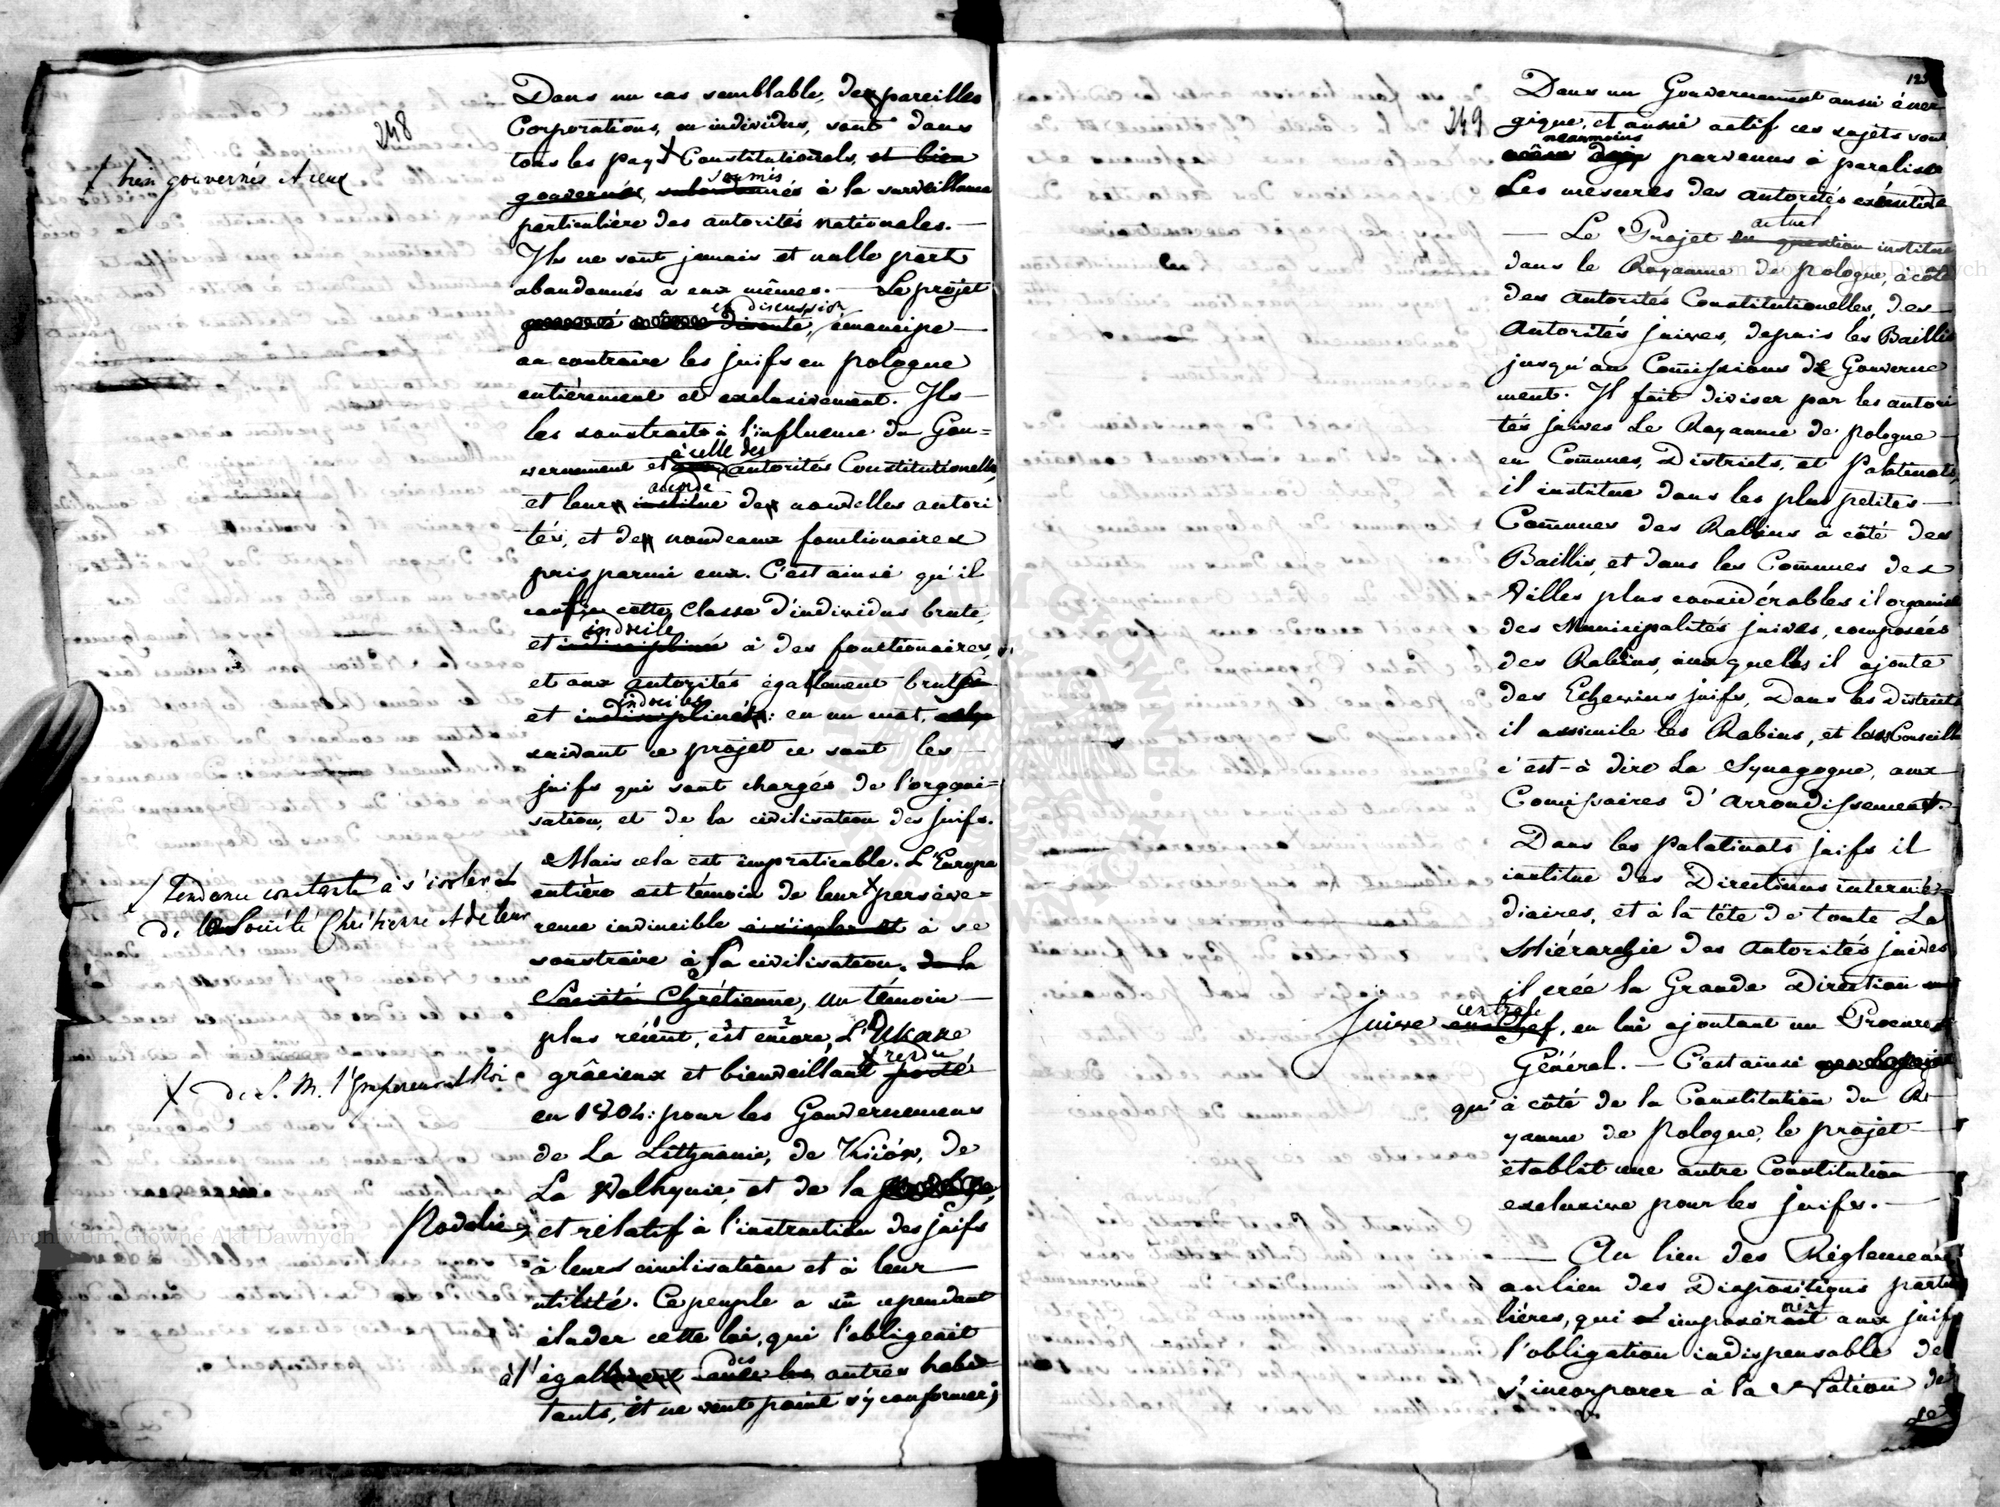 248
Dans un cas semblable, de pareilles
Corporations, ou individus, sont dans
tous les pays Constitutionels, et bien
† bien gouvernés et ceux
gouvernés, soumis à la surveillance
particulière des autorités nationales. —
Ils ne sont jamais et nulle part
abandonnés à eux mêmes. — Le projet
en discussion
émancipe —
au contraire les juifs en pologne
entièrement et exclusivement. Ils —
les soustraits à l'influence du Gou=
vernement et à celle des autorités Constitutionelles,
accorde
et leur institue de nouvelles autori
tés, et de nouveaux fonctionaires
pris parmi eux. C'est ainsi qu'il
confie cette classe d'individus brute,
indocile
et indisciplinée à des fonctionaires,
et aux autorités égallement brutes
indociles
et indisciplinés: en un mot,
suivant ce projet ce sont les —
juifs qui sont chargés de l'organi=
sation, et de la civilisation des juifs.
Mais cela est impraticable. L'Europe
entière est témoin de leur persévé=
† tendance constante à s'isoler
de la Société Chrétienne et de leur
rence indincible à s'isoler et à se
soustraire à la civilisation. de la
Société Chrétienne, un témoin —
plus récent, est encore, L'Ukaxe
rendu
grâcieux et bienveillant porté
† de S. M. l'Empereur et Roi
en 1804: pour les Gouvernemens
de La Lithuanie, de Kiiów, de
La Volhynie, et de la
Podolie, et rélatif à l'instruction des juifs
à leur civilisation et à leur —
utilité. Ce peuple a sû cependant
éluder cette loi, qui l'obligeait
à l'égal des autres habi
tants, et ne veut point s'y conformer;
125
249
Dans un Gouvernement aussi éner
gique, et aussi actif ces sujets sont
neanmoins
parvenus à paraliser
Les mesures des autorités exécutive
actuel
— Le Projet en question institue
dans le Royaume de pologne, à côté
des autorités Constitutionelles, des
Autorités juives, depuis les Baillis
jusqu'au Comissions de Gouverne
ment. Il fait diviser par les autori
tés juives Le Royaume de pologne —
en Comunes, Districts, et Palatinats,
il institue dans les plus petites —
Comunes des Rabbins à côté des
Baillis, et dans les Comunes des
Villes plus considérables il organise
des Municipalités juives, composées
des Rabins, auxquelles il ajoute
des Echevins juifs, Dans les Districts
il assimile les Rabins, et les Conseills
c'est-à dire La Synagogue, aux
Comissaires d'arrondissement. —
Dans les palatinats juifs il
institue des Directions intermé=
diaires, et à la tête de toute La
Hiérarchie des autorités juives,
il crée la Grande Direction
centrale
Juive en Chef, en lui ajoutant un Procureur
Général. — C'est ainsi
qu'à côté de la Constitution du Ro
yaume de Pologne, le projet —
établit une autre Constitution
exclusive pour les juifs. —
— Au lieu des Réglemens
au lieu des Dispositions particu
lières, qui imposeraient aux juifs
l'obligation indispensable de
s'incorporer à la Nation de
se
Archiwum Główne Akt Dawnych